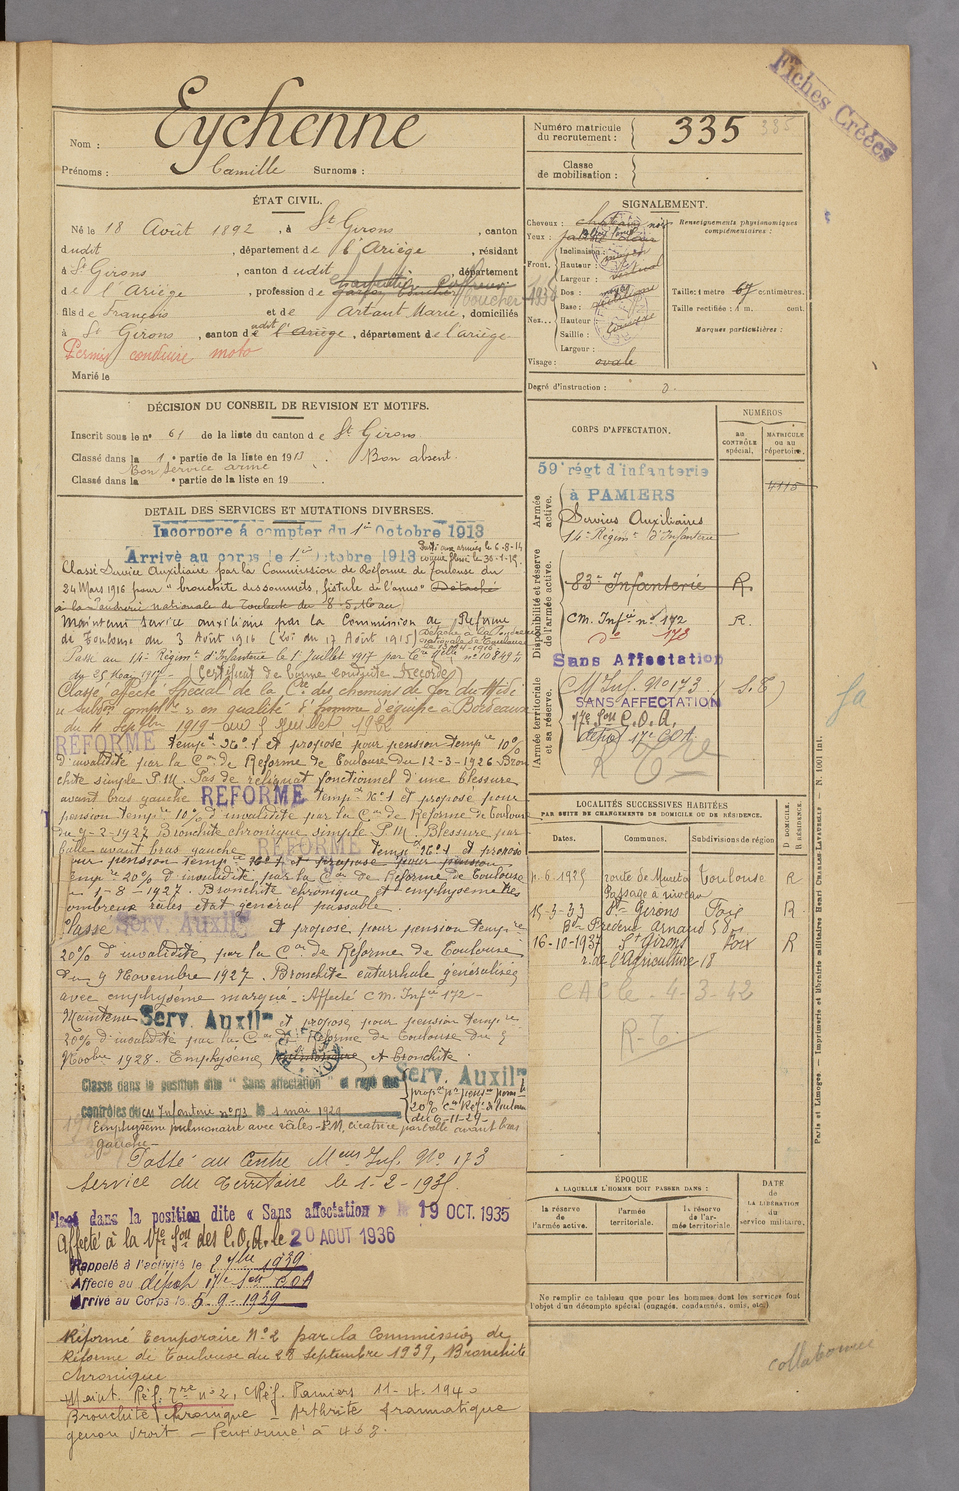 Fiches Créées
Nom : Eychenne
Prénoms : Camille Surnoms :
Numéro matricule du recrutement : 335 335
Classe de mobilisation :
ÉTAT CIVIL.
Né le 18 Août 1892, à St Girons, canton
dudit, département de l'Ariège, résidant
à St Girons, canton dudit, département
de l'Ariège, profession de
boucher 1938
fils de François et de Artaut Marie, domiciliés
à St Girons, canton dudit l'Ariège, département de l'ariège
Permis conduire moto
Marié le
SIGNALEMENT.
Cheveux : châtain noir
Yeux :
Front. Inclinaison : moyen
Hauteur :
Largeur : vertical
Nez... Dos : moy
Base : rectiligne
Hauteur
Saillie :
Largeur :
Visage : ovale
Renseignements physionomiques complémentaires :
Taille : 1 mètre 67 centimètres.
Taille rectifiée : 1 m. cent.
Marques particulières :
Degré d'instruction :
DÉCISION DU CONSEIL DE REVISION ET MOTIFS.
Inscrit sous le n° 61 de la liste du canton de St Girons
Classé dans la 1e partie de la liste en 1913 Bon absent.
Bon Service armé
Classé dans la e partie de la liste en 19
DETAIL DES SERVICES ET MUTATIONS DIVERSES.
Incorporé à compter du 1er Octobre 1913
Arrivé au corps le 1er Octobre 1913
Parti aux armées le 6-8-14
Classé Service Auxiliaire par la Commission de Réforme de Toulouse du
24 Mars 1916 pour "bronchite des sommets, fistule de l'anus" Détaché
à la Poudrerie nationale de Toulouse du 8-5-16 au
Maintenu Service auxiliaire par la Commission de Réforme
de Toulouse du 3 Août 1916 (Loi du 17 Août 1915)
Détaché à la Poudrerie nationale de Toulouse
Passé au 14e Régiment d'Infanterie le 1er Juillet 1917 par n° 10849
du 25 Mai 1917 - (Certificat de bonne conduite Accordé)
Classé affecté spécial de la Cie des chemins de fer du Midi
en qualité d'homme d'équipe à Bordeaux
du 4 Septbre 1919 au 5 Juillet 1922
RÉFORMÉ tempre N°1 et proposé pour pension tempre 10%
d'invalidité par la Con de Réforme de Toulouse du 12-3-1926 Bron
chite simple P.M. Pas de reliquat fonctionnel d'une blessure
avant bras gauche RÉFORMÉ tempre N°1 et proposé pour
pension tempre 10% d'invalidité par la Con de Réforme de Toulouse
du 9-2-1927 Bronchite chronique simple P.M. Blessure par
balle avant bras gauche RÉFORMÉ tempre N°1 et proposé
pour pension tempre N°1 et proposé pour pension
tempre 20% d'invalidité par la Con de Réforme de Toulouse
du 1-8-1927. Bronchite chronique et emphysème
nombreux râles état général passable.
Passé Serv. Auxilre et proposé pour pension tempre
20% d'invalidité par la Con de Réforme de Toulouse
du 9 Novembre 1927. Bronchite catarrhale généralisée
avec emphysème marqué - Affecté C M. Infie 172 -
Maintenu Serv. Auxilre et proposé pour pension tempre
20% d'invalidité par la Con de Réforme de Toulouse du 5
Novbre 1928. Emphysème et bronchite.
Serv. Auxilre
Classé dans la position dite "Sans affectation" et rayé des
contrôles du CM Infanterie n° 173 le 1 mai 1929
20% Con Réf. de Toulouse
du 6-11-29
Emphysème pulmonaire avec râles - P.M, cicatrice par balle avant bras
gauche -
Passé au Centre Meurs Inf. No 173
Service du Territoire le 1-2-1935
Classé dans la position dite « Sans affectation » le 19 OCT. 1935
Affecté à la 17e Son des C.O.A. le 20 AOUT 1936
Rappelé à l'activité le 2 7bre 1939
Affecté au dépôt 17e Son COA
Arrivé au Corps le 5-9-1939
Réformé temporaire N°2 par la Commission de
Réforme de Toulouse du 28 Septembre 1939, Bronchite
chronique
Maint. Réf. Tre n°2, CRéf. Pamiers 11-4-1940
Bronchite chronique - Arthrite traumatique
genou droit - Pensionné à
CORPS D'AFFECTATION.
NUMÉROS
au CONTRÔLE spécial.
MATRICULE ou au répertoire.
Armée active.
59e régt d'infanterie
à PAMIERS
4115
Services Auxiliaires
14e Régimt d'Infanterie
Disponibilité et réserve de l'armée active.
83e Infanterie R.
CM Infie n° 172 R.
do 173
Sans Affectation
Armée territoriale et sa réserve.
C M Inf. No 173 (S.T)
SANS AFFECTATION
17e Son C.O.A.
dépôt 17e COA
LOCALITÉS SUCCESSIVES HABITÉES
PAR SUITE DE CHANGEMENTS DE DOMICILE OU DE RÉSIDENCE.
Dates. Communes. Subdivisions de région D DOMICILE. R RÉSIDENCE.
6.1925 route de Muret Toulouse R
Passage à niveau
15-3-33 St Girons Foix R
Bd Frédéric Arnaud
16-10-1937 St Girons Foix R
r. de l'agriculture 18
CACle - 4-3-42
R-T
ÉPOQUE
A LAQUELLE L'HOMME DOIT PASSER DANS :
la réserve de l'armée active.
l'armée territoriale.
la réserve de l'armée territoriale.
DATE de LA LIBÉRATION du service militaire.
Ne remplir ce tableau que pour les hommes dont les services font
l'objet d'un décompte spécial (engagés, condamnés, omis, etc.)
Paris et Limoges. — Imprimerie et librairie militaires Henri CHARLES-LAVAUZELLE — N. 1001 Int.
collationnée